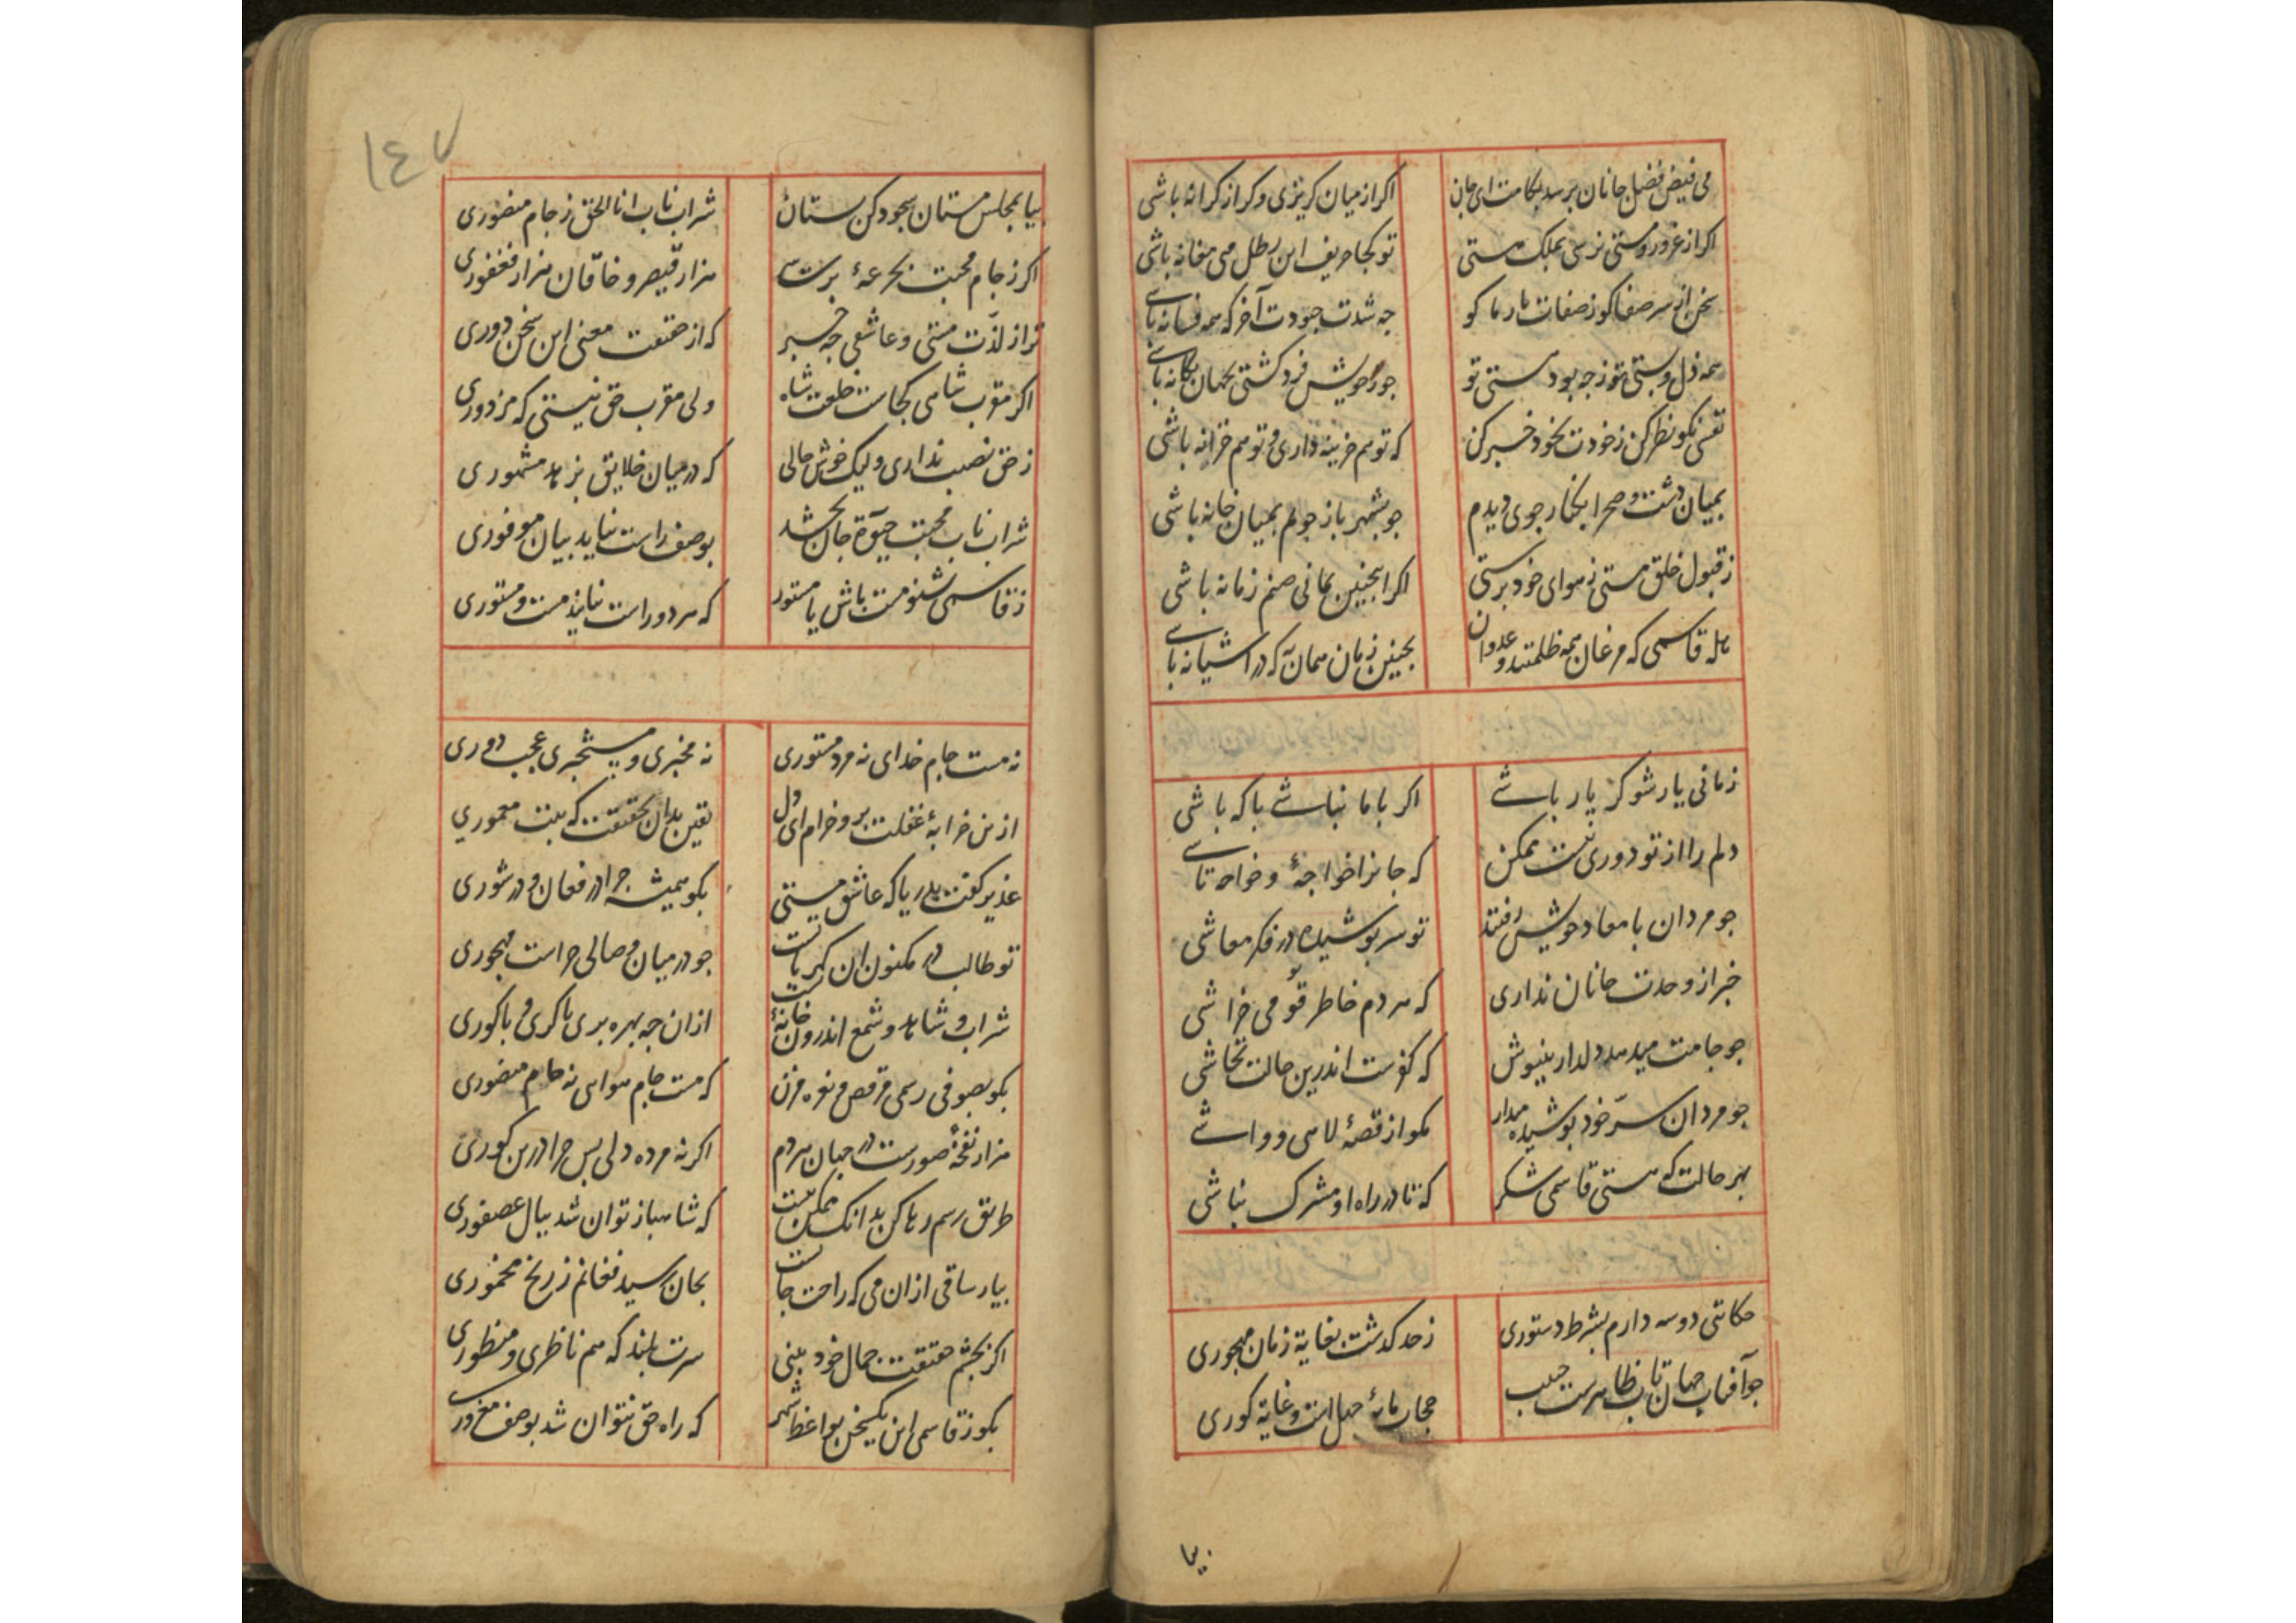 می فیض فضل جانان برسد بکامت ای جان
اکر از میان کریزی و کر از کرانه باشی
اکر از غرور و مستی نرسی بملک هستی
تو کجا حریف این رطل می مغانه باشی
سخن از سر صفا کو ز صفات یار ما کو
چه شدت جودت آخر که همه فسانه باشی
همه ذل و پستی تو ز چه بود هستی تو
جو ز خویش فرد کشتی بجهان یکانه باشی
نفسی نکو نظر کن ز خودت بخود خبر کن
که تو هم خزینه داری و تو هم خزانه باشی
بمیان دشت و صحرا بکنار جوی دیدم
جو بشهر باز جویم بمیان خانه باشی
ز قبول خلق مستی ز هوای خود پرستی
اکر اینچنین بمانی صنم زمانه باشی
هله قاسمی که مرغان همه ظلمتند و عدوان
بچنین زمان همان به که در آشیانه باشی
زمانی یار شو کر یار باشی
اکر با ما نباشی با که باشی
دلم را از تو دوری نیست ممکن
که جانرا خواجهٔ و خواجه تاشی
جو مردان با معاد خویش رفتند
تو سر پوشیده در فکر معاشی
خبر از وحدت جانان نداری
که هر دم خاطر قومی خراشی
جو جامت میدهد دلدار بنیوش
که کفرست اندرین حالت تحاشی
جو مردان سرّ خود پوشیده میدار
مکو از قصهٔ لاسی و واشی
بهر حالت که هستی قاسمی شکر
که تا در راه او مشرک نباشی
حکایتی دو سه دارم بشرط دستوری
ز حد کذشت بغایة زمان مهجوری
جو آفتاب جهان تاب ظاهرست حبیب
حجاب مایهٔ جهل است و غایة کوری
بیا
١٤٧
بیا بمجلس مستان سجود کن مستانهٔ
شراب ناب انا الحق ز جام منصوری
اکر ز جام محبت بجرعهٔ برسی
هزار قیصر و خاقان هزار فغفوری
ترا ز لذّت مستی و عاشقی چه خبر
که از حقیقت معنی این سخن دوری
اکر مقرب شاهی کجاست خلعت شاه
ولی مقرب حق نیستی که مزدوری
ز حق نصیب نداری ولیک خوش حالی
که در میان خلایق بزهد مشهوری
شراب ناب محبت حیوة جان بخشد
بوصف راست نیاید بیان موفوری
ز قاسمی شنو مست باش یا مستور
که هر دو راست نیایذ مست و مستوری
نه مست جام خدای نه مرد مستوری
نه مخبری و مستخبری عجب دوری
ازین خرابهٔ غفلت برو خرام ای دل
یقین بدان بحقیقت که بیت معموری
غدیر کفت بدریا که عاشق مستی
بکو همیشه چرا در فغان و در شوری
تو طالب در مکنون و ان کهر با تست
جو در میان وصالی چراست مهجوری
شراب و شاهد و شمع اندرون خانهٔ تست
ازان چه بهره بری با کری و با کوری
بکو بصوفی رسمی مرقص و نعره مزن
که مست جام هوایی نه جام منصوری
هزار نفخهٔ صورست در جهان هر دم
اکر نه مرده دلی پس چرا درین کوری
طریق رسم رها کن بدانک ممکن نیست
که شاهباز توان شد ببال عصفوری
بیار ساقی ازان می که راحت جانست
بجان رسید فغانم ز رنج مخموری
اکر بچشم حقیقت جمال خود بینی
سرت بلند که هم ناظری و منظوری
بکو ز قاسمی این یکسخن بواعظ شهر
که راه حق نتوان شد بوصف مغروری